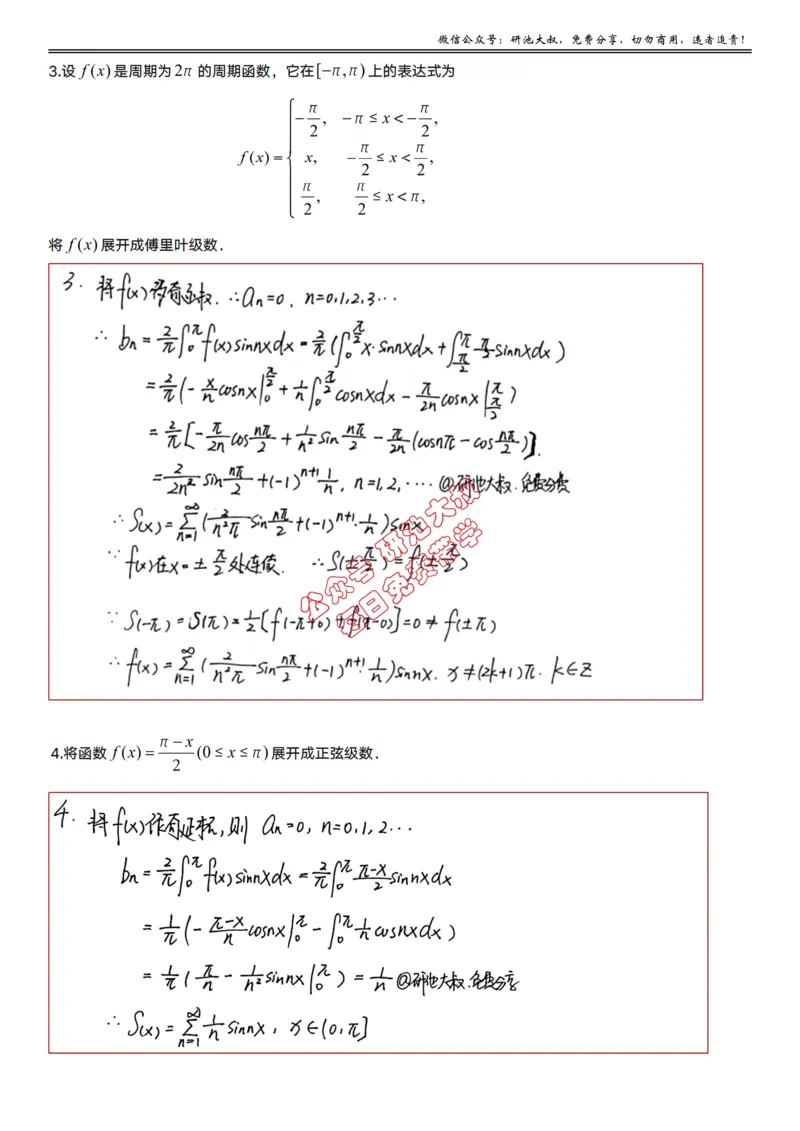 微信公众号：研池大叔，免费分享，切勿商用，违者追责！
3.设 f(x)是周期为2π 的周期函数，它在[−π,π)上的表达式为
f(x) = { −π/2, −π ≤ x < −π/2,
x, −π/2 ≤ x < π/2,
π/2, π/2 ≤ x < π,
将 f(x)展开成傅里叶级数.
3. 将f(x)为奇函数. ∴ aₙ=0, n=0,1,2,3⋯
∴ bₙ = 2/π ∫₀^π f(x)sinnxdx = 2/π (∫₀^{π/2} x·sinnxdx + ∫_{π/2}^π π/2 sinnxdx)
= 2/π (−x/n cosnx|₀^{π/2} + 1/n ∫₀^{π/2} cosnxdx − π/2n cosnx|_{π/2}^π)
= 2/π [−π/2n cos nπ/2 + 1/n² sin nπ/2 − π/2n (cosnπ − cos nπ/2)].
= 2/2n² sin nπ/2 + (−1)ⁿ⁺¹ 1/n, n=1,2,⋯ @研池大叔.免费分享
∴ S(x) = ∑_{n=1}^∞ (2/n²π sin nπ/2 + (−1)ⁿ⁺¹·1/n)sinx
∵ f(x)在x=±π/2处连续. ∴ S(±π/2) = f(±π/2)
公众号 研池大叔
每日免费带学
∵ S(−π) = S(π) = 1/2[f(−π+0) + f(π−0)] = 0 ≠ f(±π)
∴ f(x) = ∑_{n=1}^∞ (2/n²π sin nπ/2 + (−1)ⁿ⁺¹·1/n)sinnx. x≠(2k+1)π. k∈Z
4.将函数 f(x) = (π−x)/2 (0 ≤ x ≤ π)展开成正弦级数.
4. 将f(x)作奇延拓,则 aₙ=0, n=0,1,2⋯
bₙ = 2/π ∫₀^π f(x)sinnxdx = 2/π ∫₀^π (π−x)/2 sinnxdx
= 1/π (−(π−x)/n cosnx|₀^π − ∫₀^π 1/n cosnxdx)
= 1/π (π/n − 1/n² sinnx|₀^π) = 1/n @研池大叔.免费分享
∴ S(x) = ∑_{n=1}^∞ 1/n sinnx, x∈(0,π]